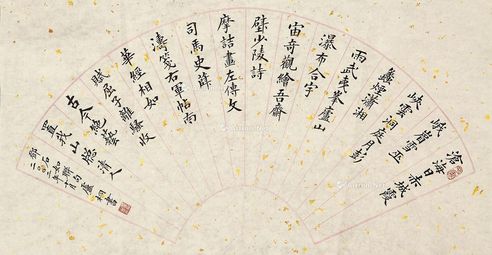 滄海日赤城霞
峨眉雪巫
峽雲洞庭月彭
蠡煙瀟湘
雨武夷峯廬山
瀑布合宇
宙奇觀繪吾齋
壁少陵詩
摩詰畫左傳文
司馬史薛
濤箋右軍帖南
華經相如
賦屈子離騷收
古今絕藝
置我山窗清人
鄧石如聯句
桐書